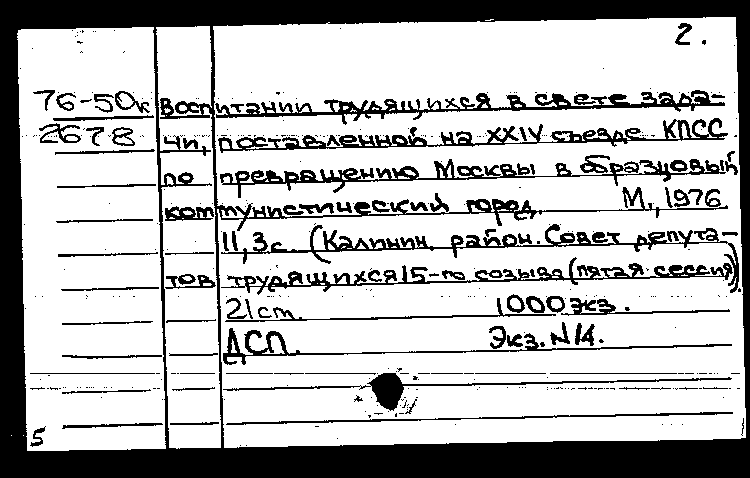 2.
76-50к воспитании трудящихся в свете зада-
2678 чи, поставленной на XXIV съезде КПСС
по превращению Москвы в образцовый
коммунистический город. М., 1976
11,3с. (Калинин. район. Совет депута-
тов трудящихся 15-го созыва (пятая сессия)).
21 см. 1000 экз.
ДСП. Экз. N 14.
5